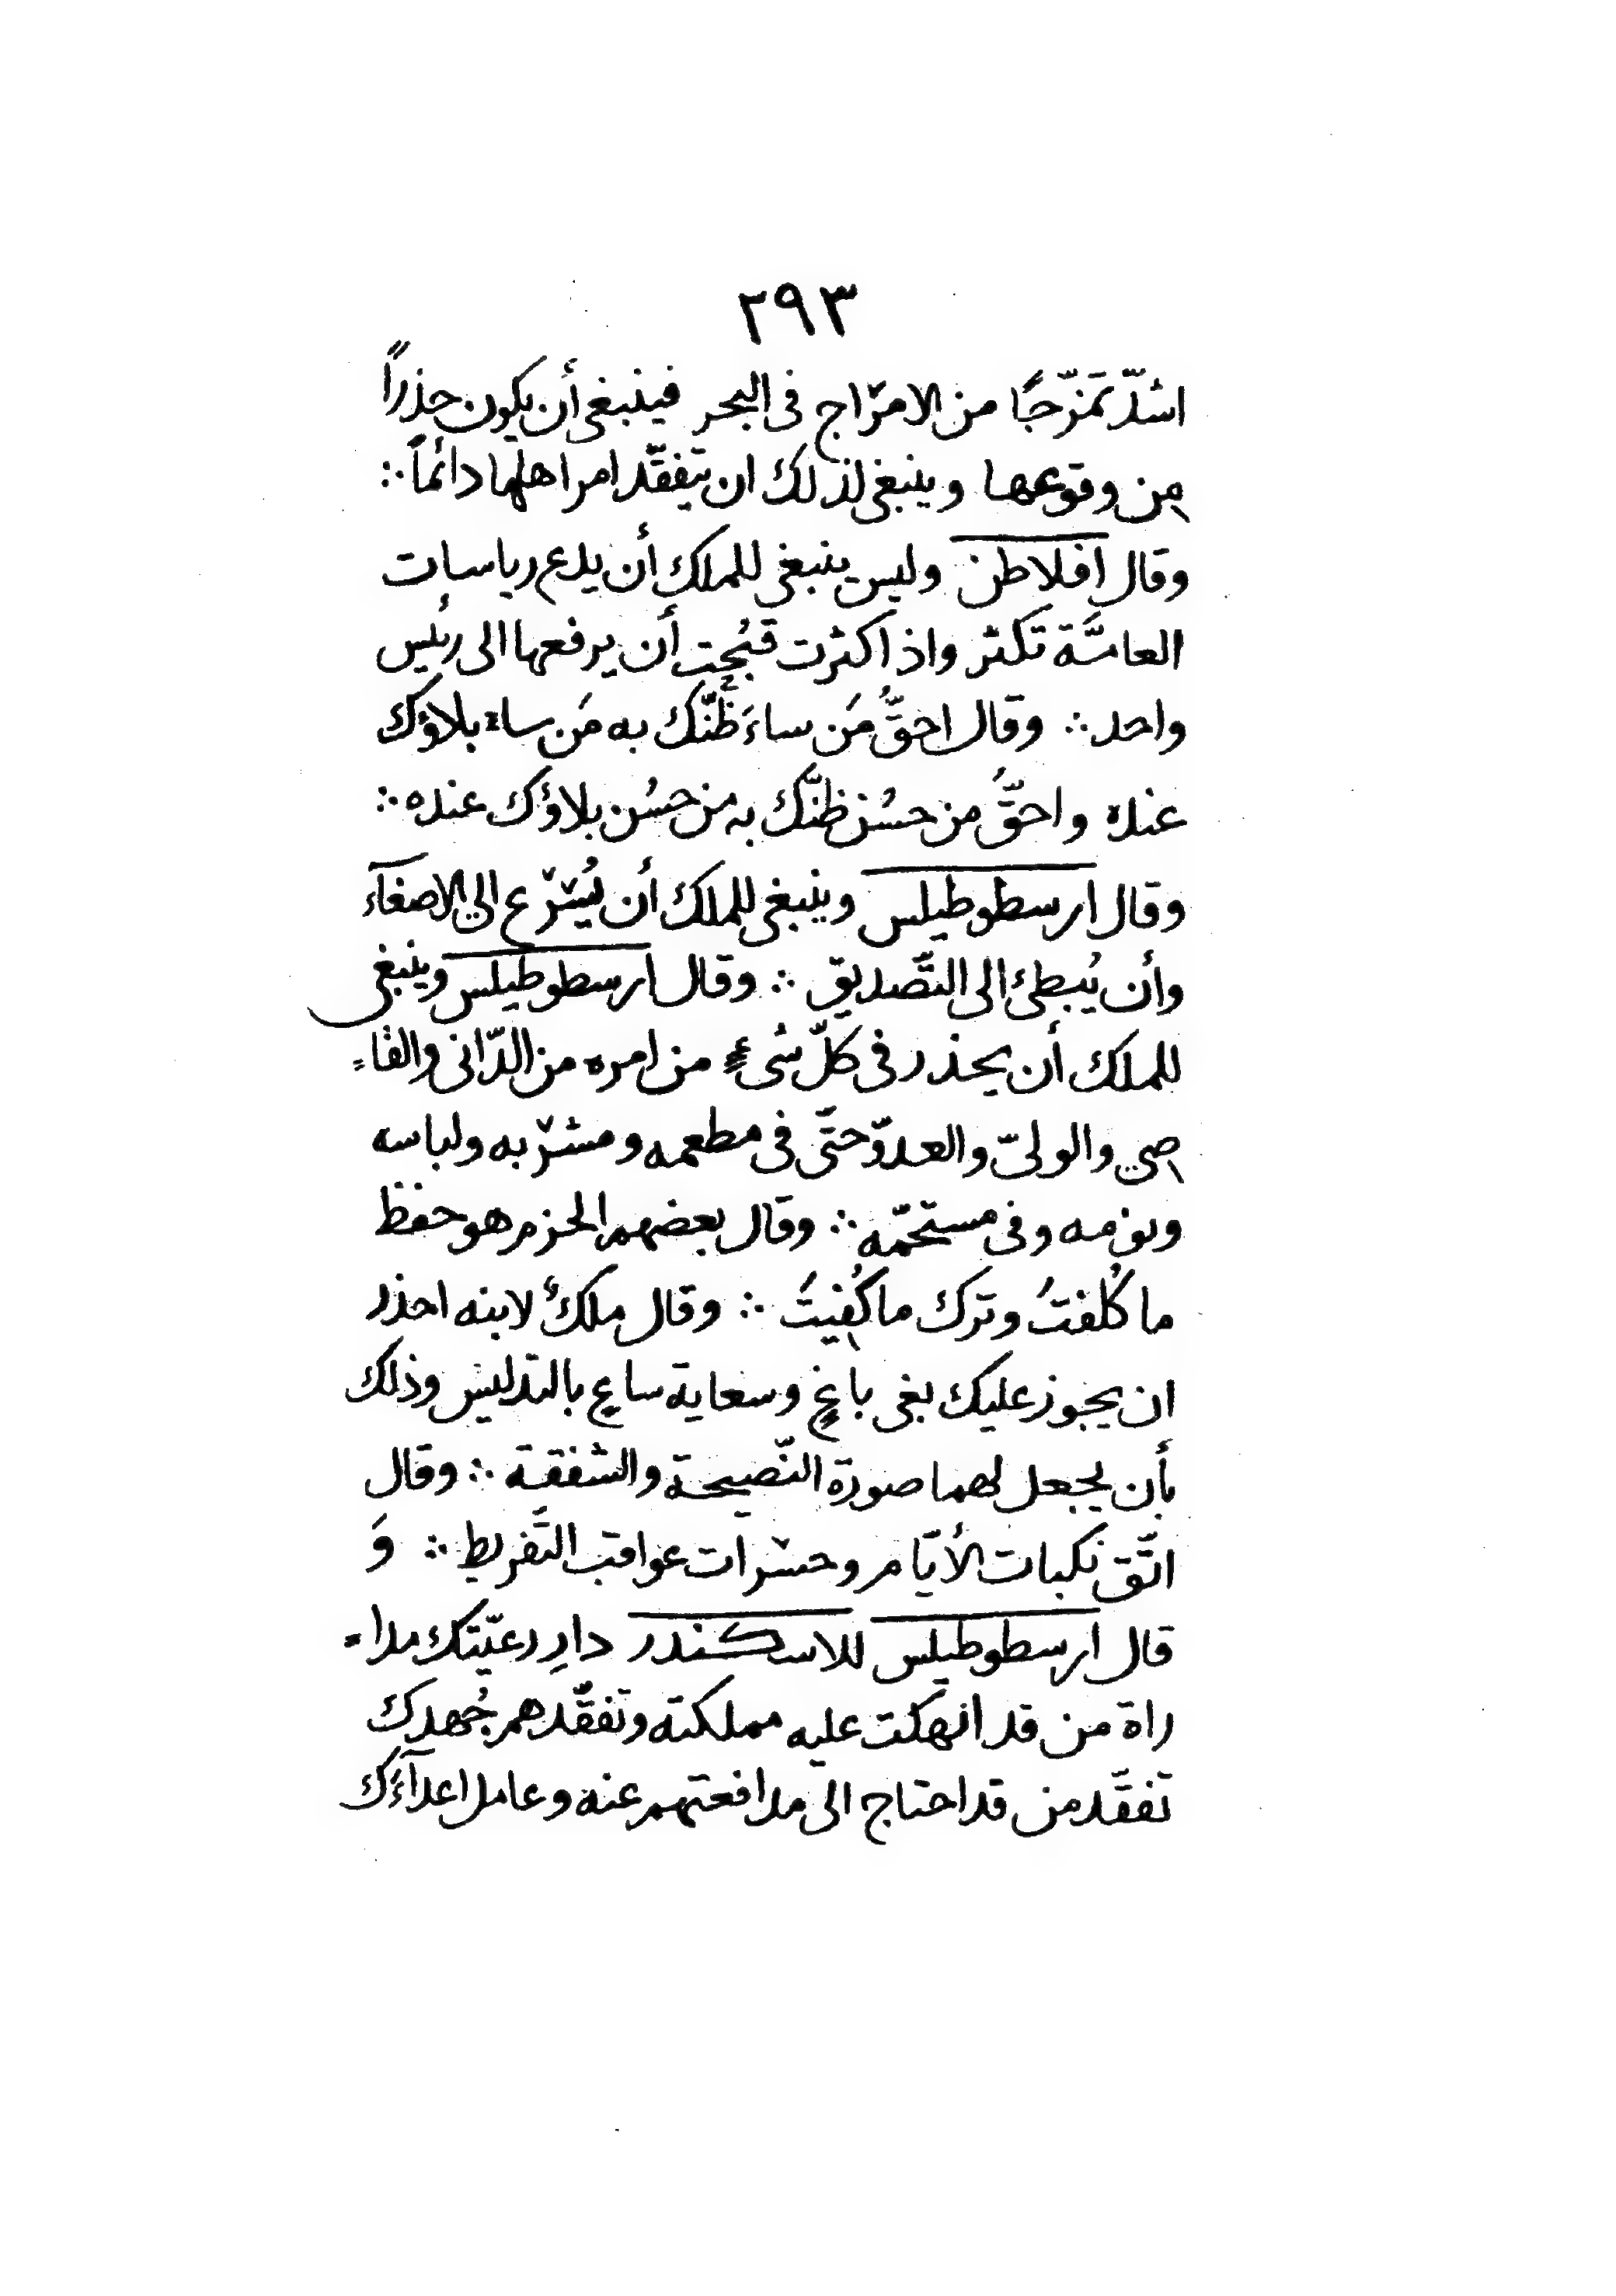 ٢٩٣
اشدّ تَمَزّجًا من الامزاج فى البحر فينبغى أن يكون حذراً
من وقوعها وينبغى لذلك ان يتفقّد امر اهلها دائماً ∴
وقال افلاطن وليس ينبغى للملك أن يدع رياسات
العامَّة تكثر واذا كثرت قبُحت أن يرفعها الى رئيس
واحد ∴ وقال احقُّ مَن ساءَ ظَنُّك به مَن ساء بلاؤك
عنده واحقُّ من حسُن ظنّك به من حسُن بلاؤك عنده ∴
وقال ارسطوطيلس وينبغى للملك أن يُسْرع الى الاصغآء
وأن يُبطئ الى التَّصديق ∴ وقال ارسطوطيلس وينبغى
للملك أن يحذر فى كلّ شىءٍ من امره من الدّانى والقا=
صى والولىّ والعدوّ حتّى فى مطعمه ومشربه ولباسه
ونومه وفى مستحمّه ∴ وقال بعضهم الحزم هو حفظ
ما كُلفتُ وترك ما كُفيتُ ∴ وقال ملكٌ لابنه احذر
ان يجوز عليك بغى باغٍ وسعاية ساعٍ بالتدليس وذلك
بأن يجعل لهما صورة النّصيحة والشفقة ∴ وقال
اتَّق نكبات الأيّام وحسْرات عواقب التَّفريط ∴ وَ
قال ارسطوطيلس للاسكندر دارِ رعيّتك مدا=
راة من قد انهكت عليه مملكته وتفقّدهم جُهدك
تفقّد من قد احتاج الى مدافعتهم عنه وعامل اعدآءَك